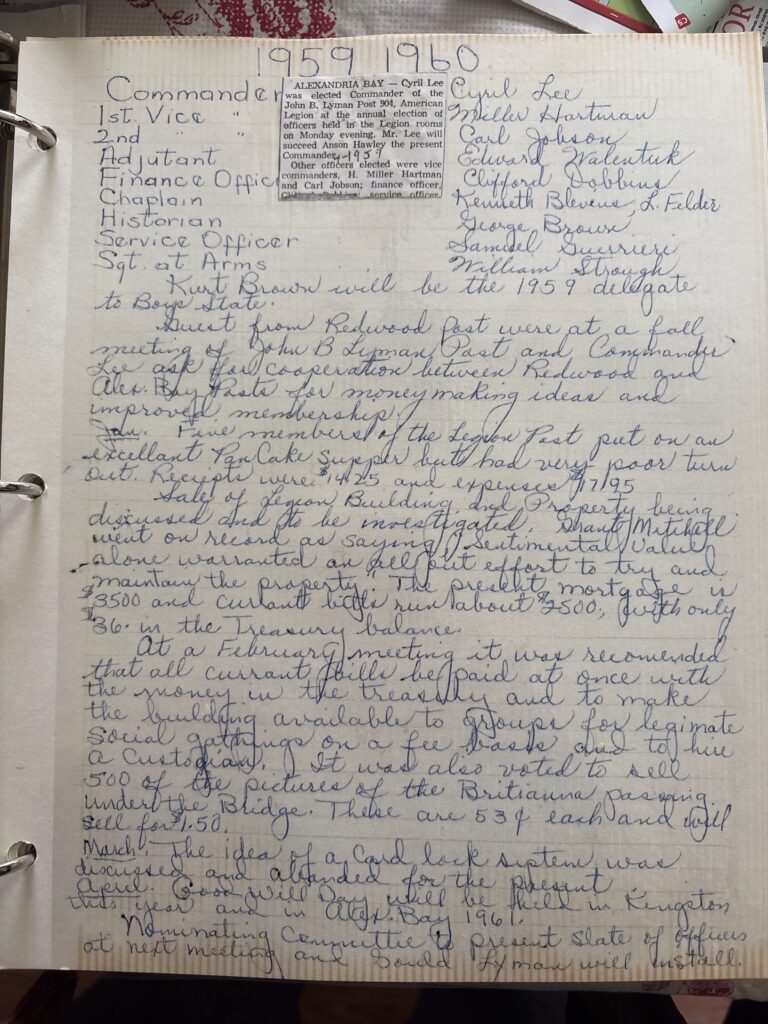 1959 1960
Commander Cyril Lee
1st. Vice " Miller Hartman
2nd " " Carl Jobson
Adjutant Edward Walentuk
Finance Offic Clifford Dobbins
Chaplain Kenneth Blevens, L. Felder
Historian George Brown
Service Officer Samuel Guerrieri
Sgt. at Arms William Strough
ALEXANDRIA BAY — Cyril Lee
was elected Commander of the
John B, Lyman Post 904, American
Legion at the annual election of
officers held in the Legion rooms
on Monday evening. Mr. Lee will
succeed Anson Hawley the present
Commander. 1959
Other officers elected were vice
commanders, H. Miller Hartman
and Carl Jobson; finance officer,
service officer,
Kurt Brown will be the 1959 delegate
to Boys State.
Guest from Redwood Post were at a fall
meeting of John B Lyman Post and Commander
Lee ask for cooperation between Redwood and
Alex. Bay Posts for money making ideas and
improved membership.
Jan. Five members of the Legion Post put on an
excellent PanCake Supper but had very poor turn
out. Receipts were $14.25 and expenses $17.95
Sale of Legion Building and Property being
discussed and to be investigated. Grant Mitchell
went on record as saying "Sentimental Value
alone warranted an all out effort to try and
maintain the property". The present mortgage is
$3500 and currant bills run about $2500, with only
$36. in the Treasury balance.
At a February meeting it was recomended
that all currant bills be paid at once with
the money in the treasury and to make
the building available to groups for legimate
social gatherings on a fee basis and to hire
a Custodian. It was also voted to sell
500 of the pictures of the Britianna passing
under the Bridge. These are 53¢ each and will
sell for $1.50.
March. The idea of a Card lock system was
discussed and abanded for the present.
April. Good Will Day will be held in Kingston
this year and in Alex. Bay 1961.
Nominating Committee to present slate of officers
at next meeting and Gould Lyman will install.